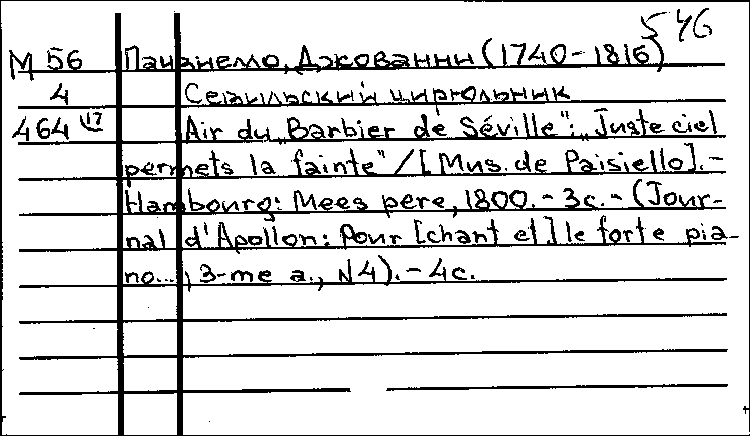 546
М 56 Паизиелло, Джованни (1740-1816)
4 Севильский цирюльник
464 17 Air du „Barbier de Séville": „Juste ciel
permets la fainte" / [Mus. de Paisiello]. -
Hambourg: Mees pere, 1800. - 3c. - (Jour-
nal d'Apollon: Pour [chant et] le forte pia-
no..., 3-me a., N4). - 4c.